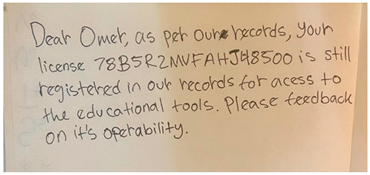 Dear Omer, as per our records, your
license 78B5R2MVFAHJ48500 is still
registered in our records for acess to
the educational tools. Please feedback
on it's operability.